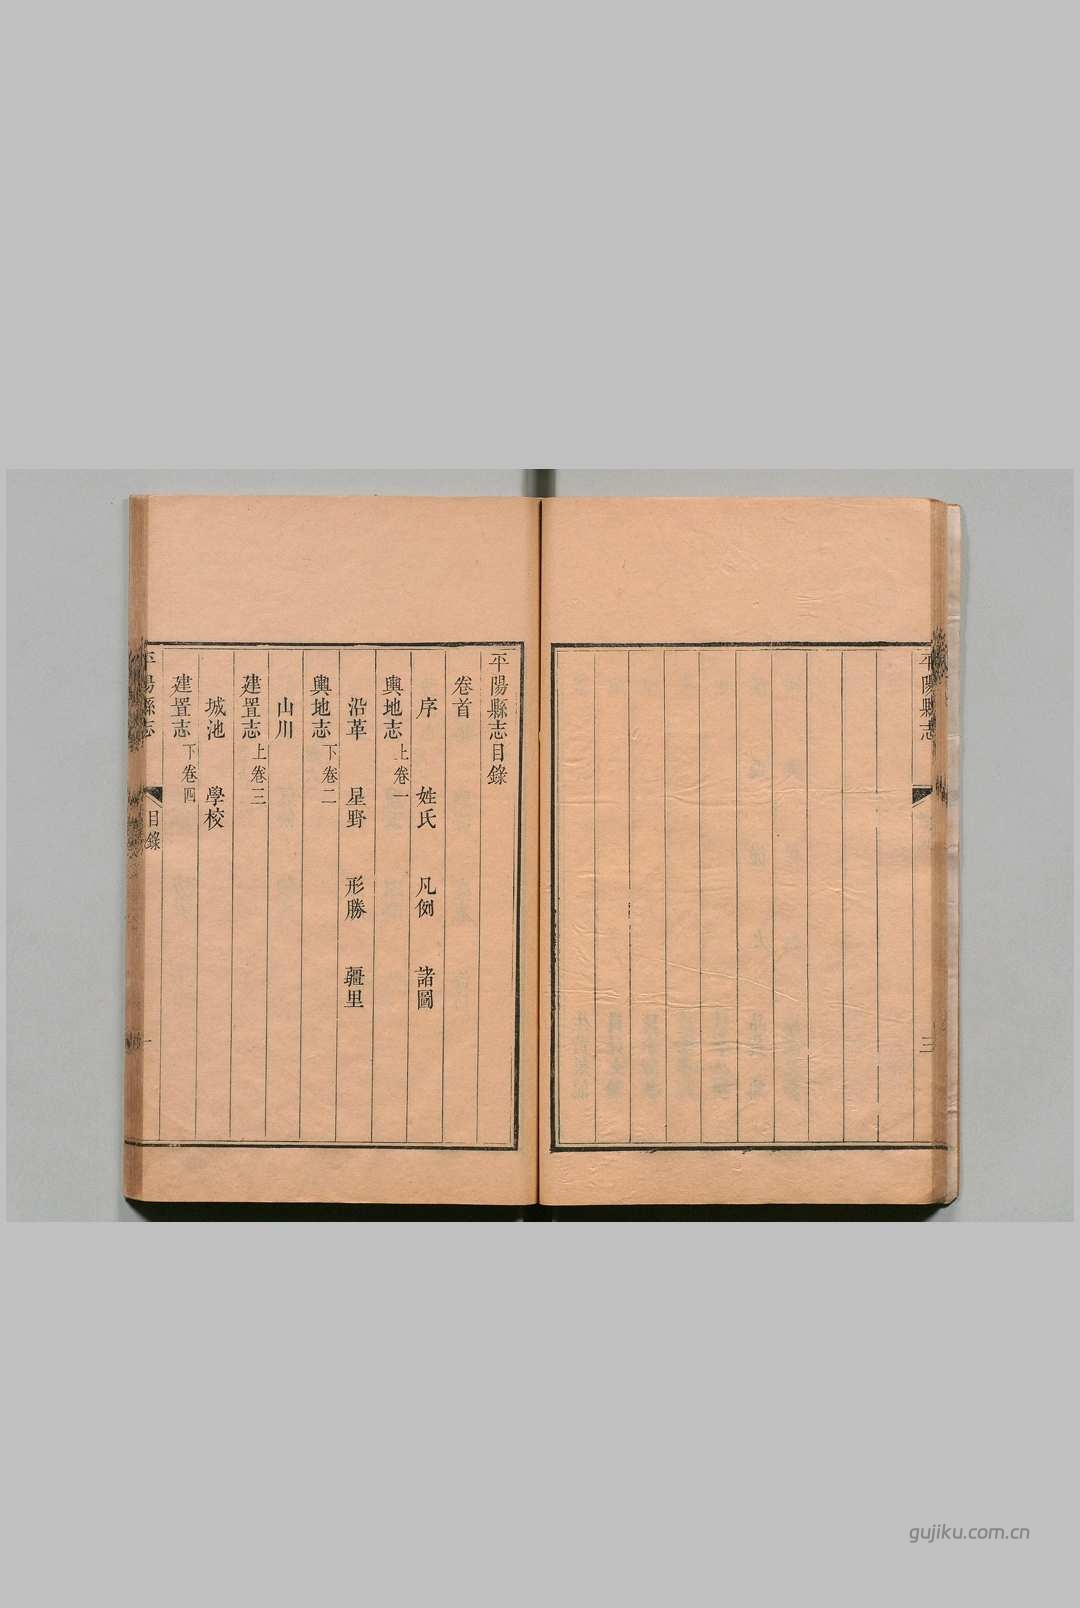 平陽縣志
三
平陽縣志目錄
卷首
序 姓氏 凡例 諸圖
輿地志上卷一
沿革 星野 形勝 疆里
輿地志下卷二
山川
建置志上卷三
城池 學校
建置志下卷四
平陽縣志 目錄 一
gujiku.com.cn